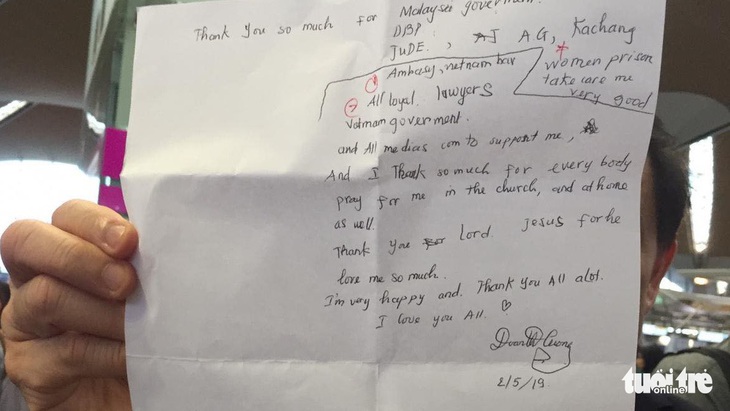 Thank You so much for Malaysei goverment.
DPP.
JUDE., AG, Kachang
Ambasy, vetnam bar
* women prison
take care me
very good
All loyal lawyers
Vatnam goverment.
and All medias com to support me,
And I Thank so much for every body
pray for me in the church, and at home
as well.
Thank you for Lord Jesus for he
love me so much.
I'm very happy and. Thank you All alot.
I love you All. ♡
2/5/19.
tuổi trẻ
online